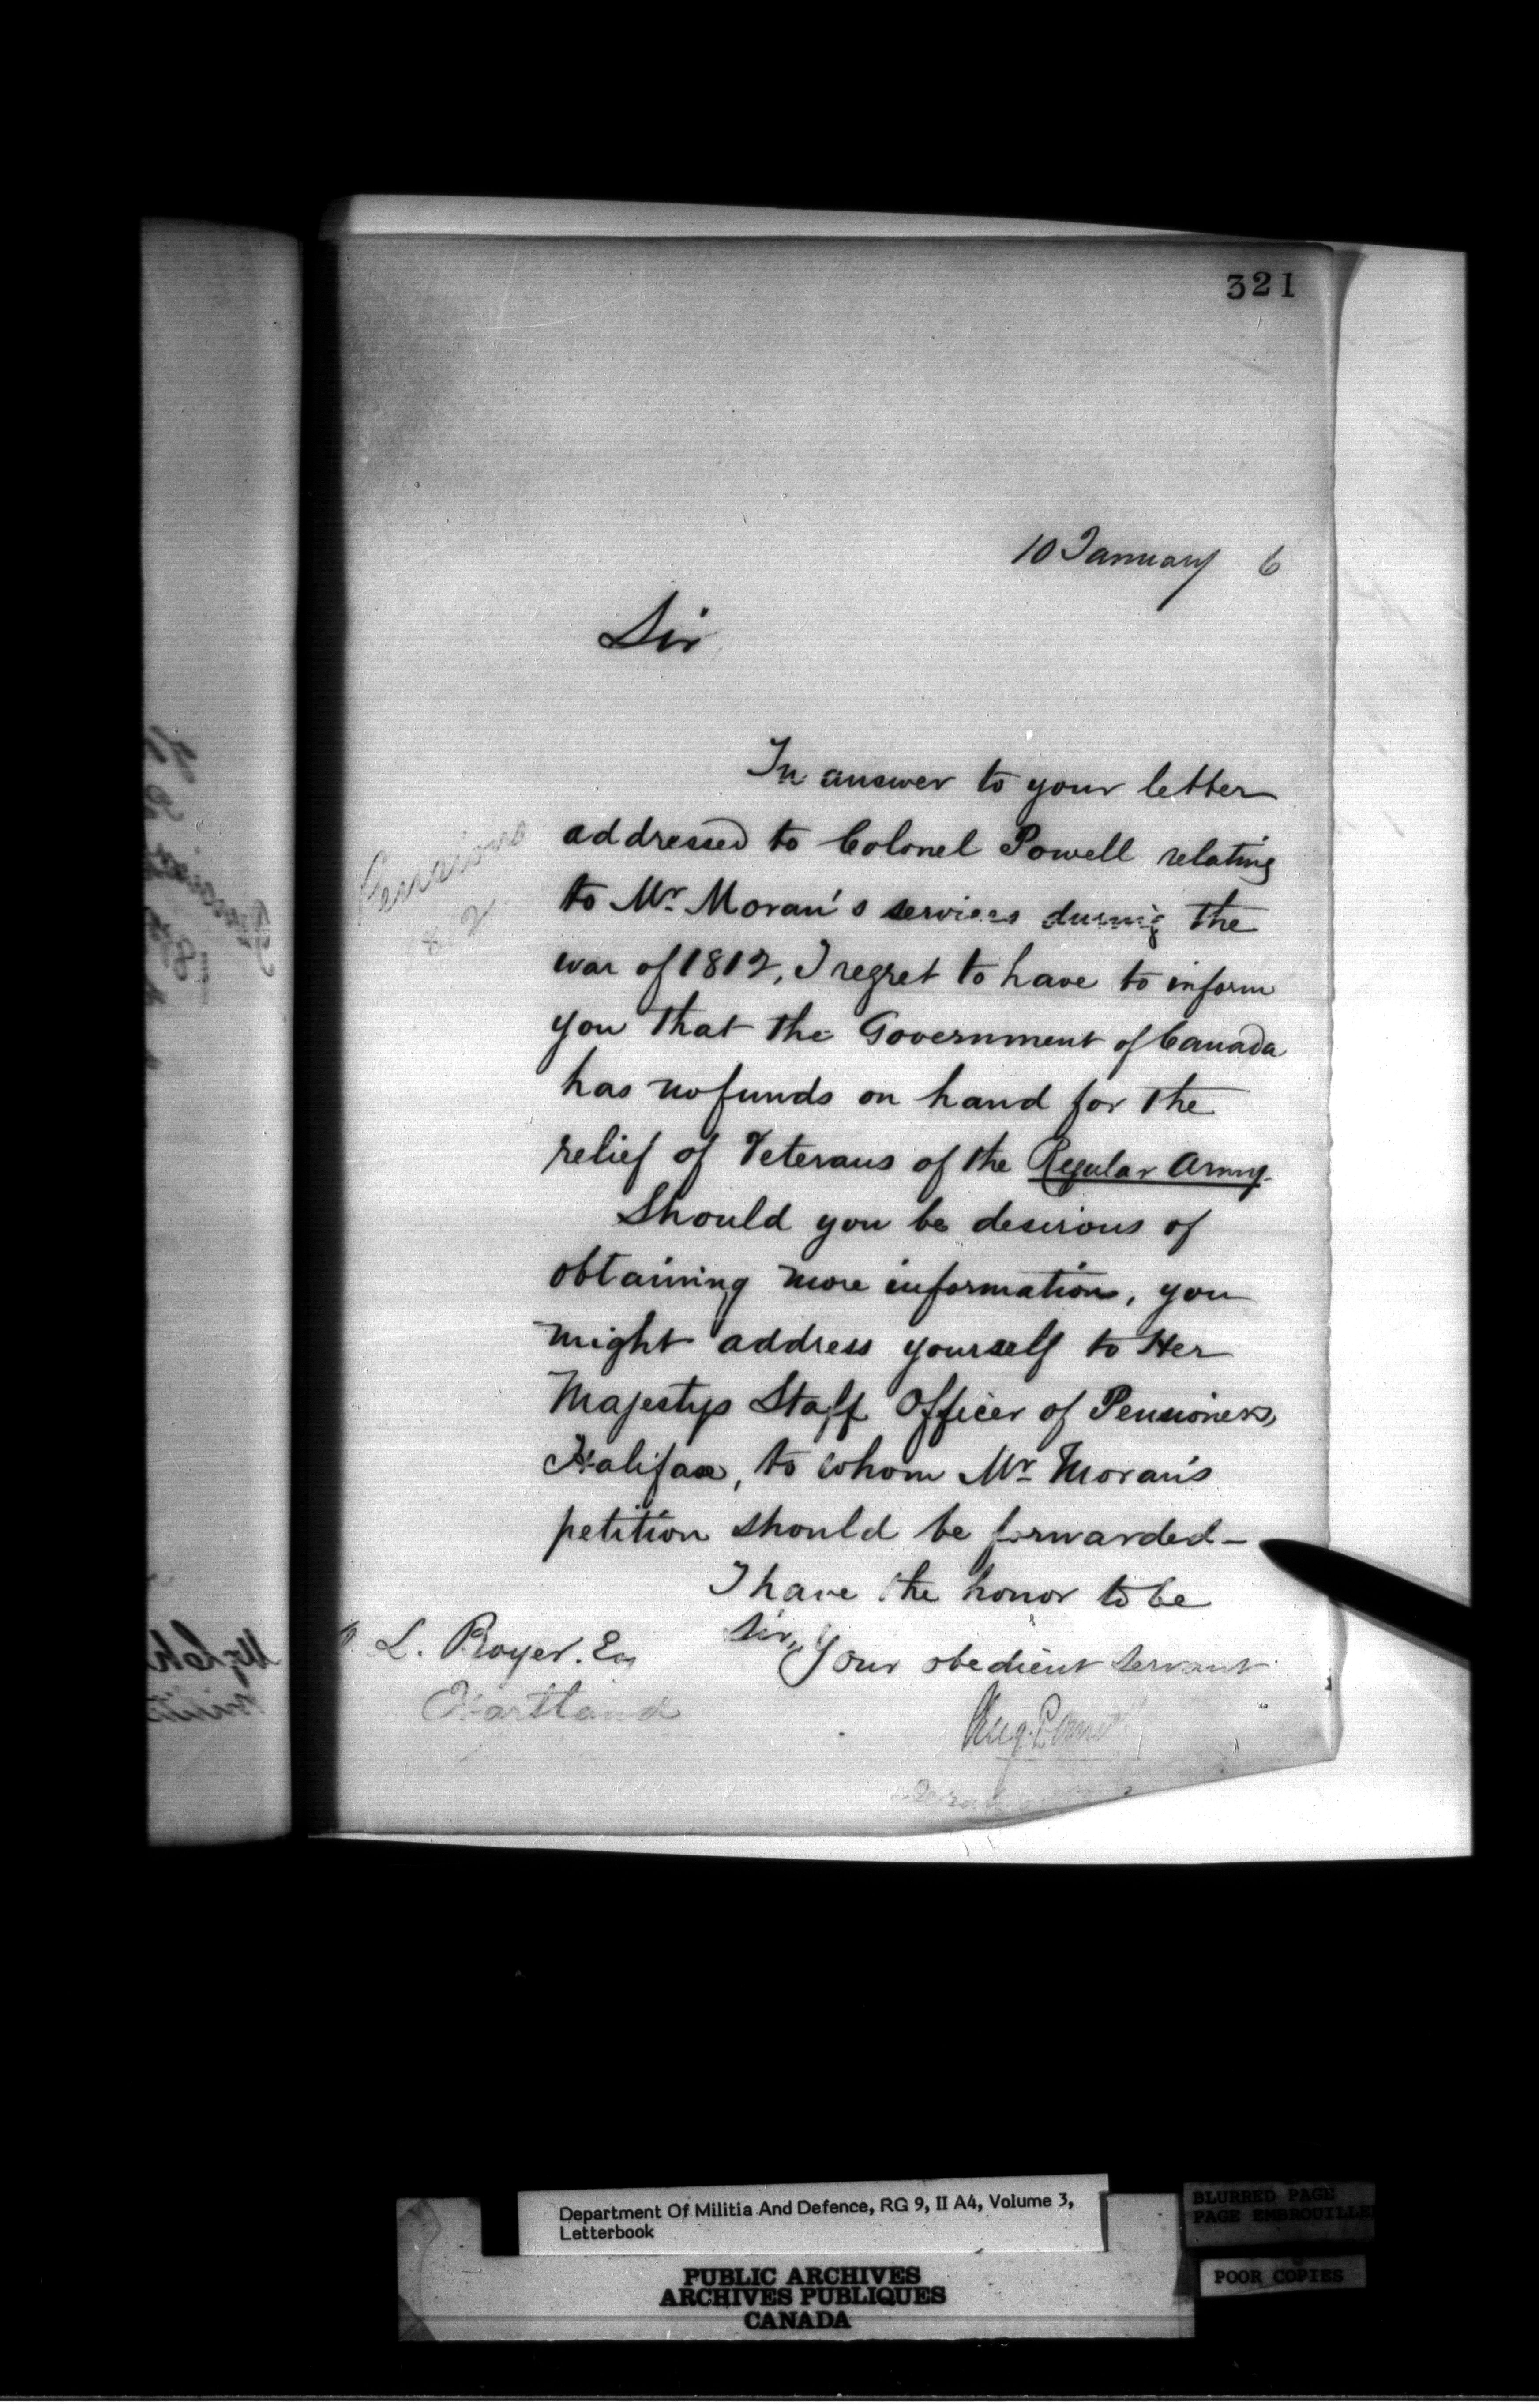 321
10 January 6
Sir
In answer to your letter
addressed to Colonel Powell relating
Pensions
to Mr. Moran's services during the
war of 1812, I regret to have to inform
you that the Government of Canada
has no funds on hand for the
relief of Veterans of the Regular Army.
Should you be desirous of
obtaining more information, you
might address yourself to Her
Majestys Staff Officer of Pensioners,
Halifax, to whom Mr. Moran's
petition should be forwarded—
I have the honor to be
Sir,
L. Boyer. Esq
Your obedient Servant
Hartland
Department Of Militia And Defence, RG 9, II A4, Volume 3,
Letterbook
BLURRED PAGE
PAGE EMBROUILLE
PUBLIC ARCHIVES
ARCHIVES PUBLIQUES
CANADA
POOR COPIES